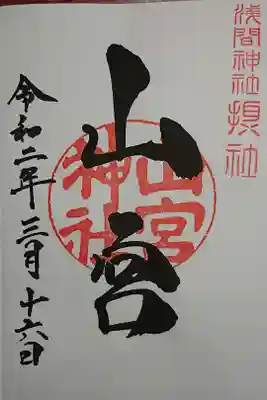 浅間神社摂社
山宮
山宮神社
令和二年三月十六日